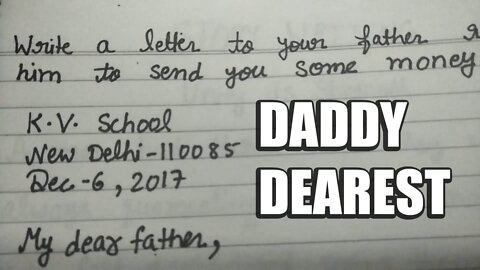 Write a letter to your father
him to send you some money
K.V. School
New Delhi-110085
Dec-6, 2017
My dear father,
DADDY
DEAREST